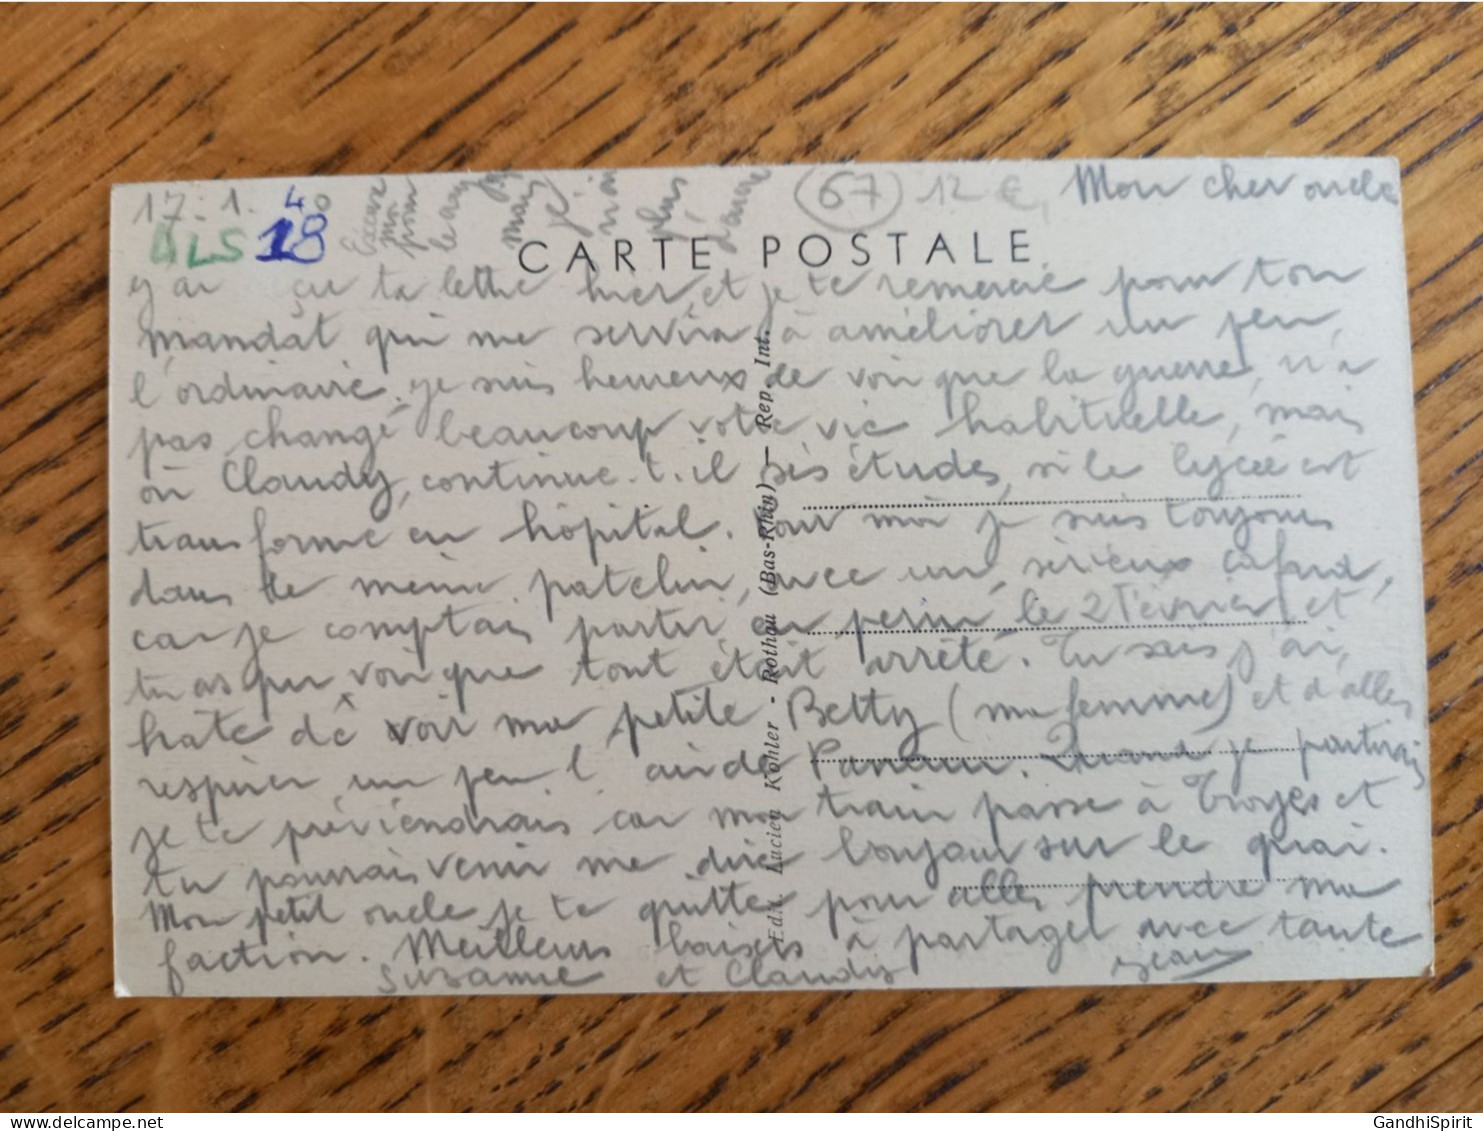 17.1.40
ALS 18
Excuse
mon
crayon
mais
je
n'ai
plus
d'encre
67 12 €
Mon cher oncle
CARTE POSTALE
J'ai çu ta lettre hier, et je te remercie pour ton
mandat qui me servira à améliorer un peu,
l'ordinaire. Je suis heureux de voir que la guerre, n'a
pas changé beaucoup votre vie habituelle, mais
où Claudy, continue-t-il ses études, si le lycée est
transformé en hôpital. Pour moi je suis toujours
dans le même patelin, avec un sérieux cafard,
car je comptais partir en perm le 2 Février, et
tu as pu voir que tout était arrêté. Tu sais j'ai,
hâte de voir ma petite Betty (ma femme) et d'aller
respirer un peu l'air de Paname. Quand je partirai
je te préviendrais car mon train passe à Troyes et
tu pourrais venir me dire bonjour sur le quai.
Mon petit oncle je te quitte pour aller prendre ma
faction. Meilleurs baisers à partager avec tante
Suzanne et Claudy Jean
Edit. Lucien Kohler - Rothau (Bas-Rhin) — Rep. Int.
GandhiSpirit